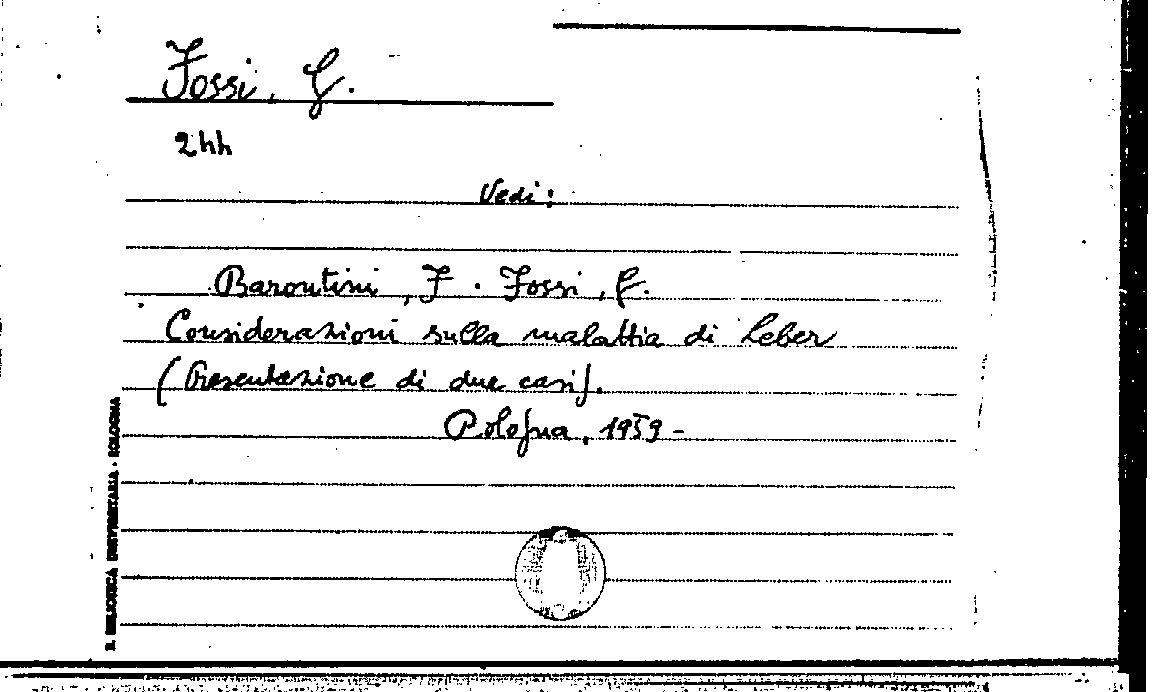 Fossi, G.
2hh
Vedi:
Barontini, F. Fossi, G.
Considerazioni sulla malattia di Leber
(Presentazione di due casi).
Bologna, 1959 -
R. BIBLIOTECA UNIVERSITARIA - BOLOGNA